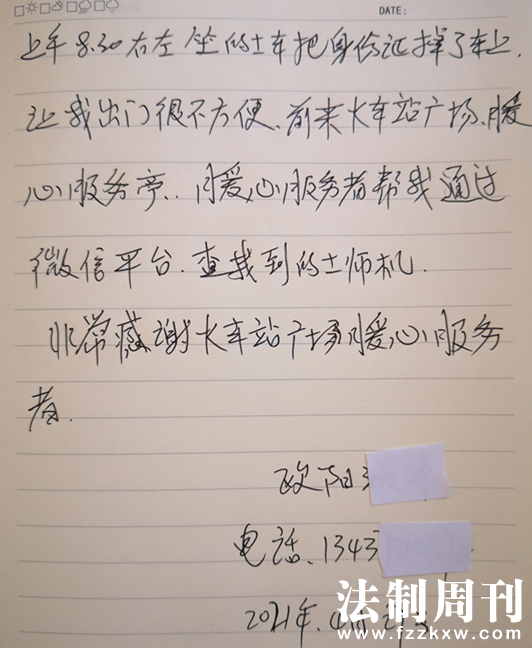 DATE:
上午8.30右左坐的士车把身份证掉了车上.
让我出门很不方便、前来火车站广场.暖
心服务亭..暖心服务者帮我通过
微信平台.查找到的士师机.
非常感谢火车站广场暖心服务
者.
欧阳
电话.1343
2021年.
法制周刊
www.fzzkxw.com